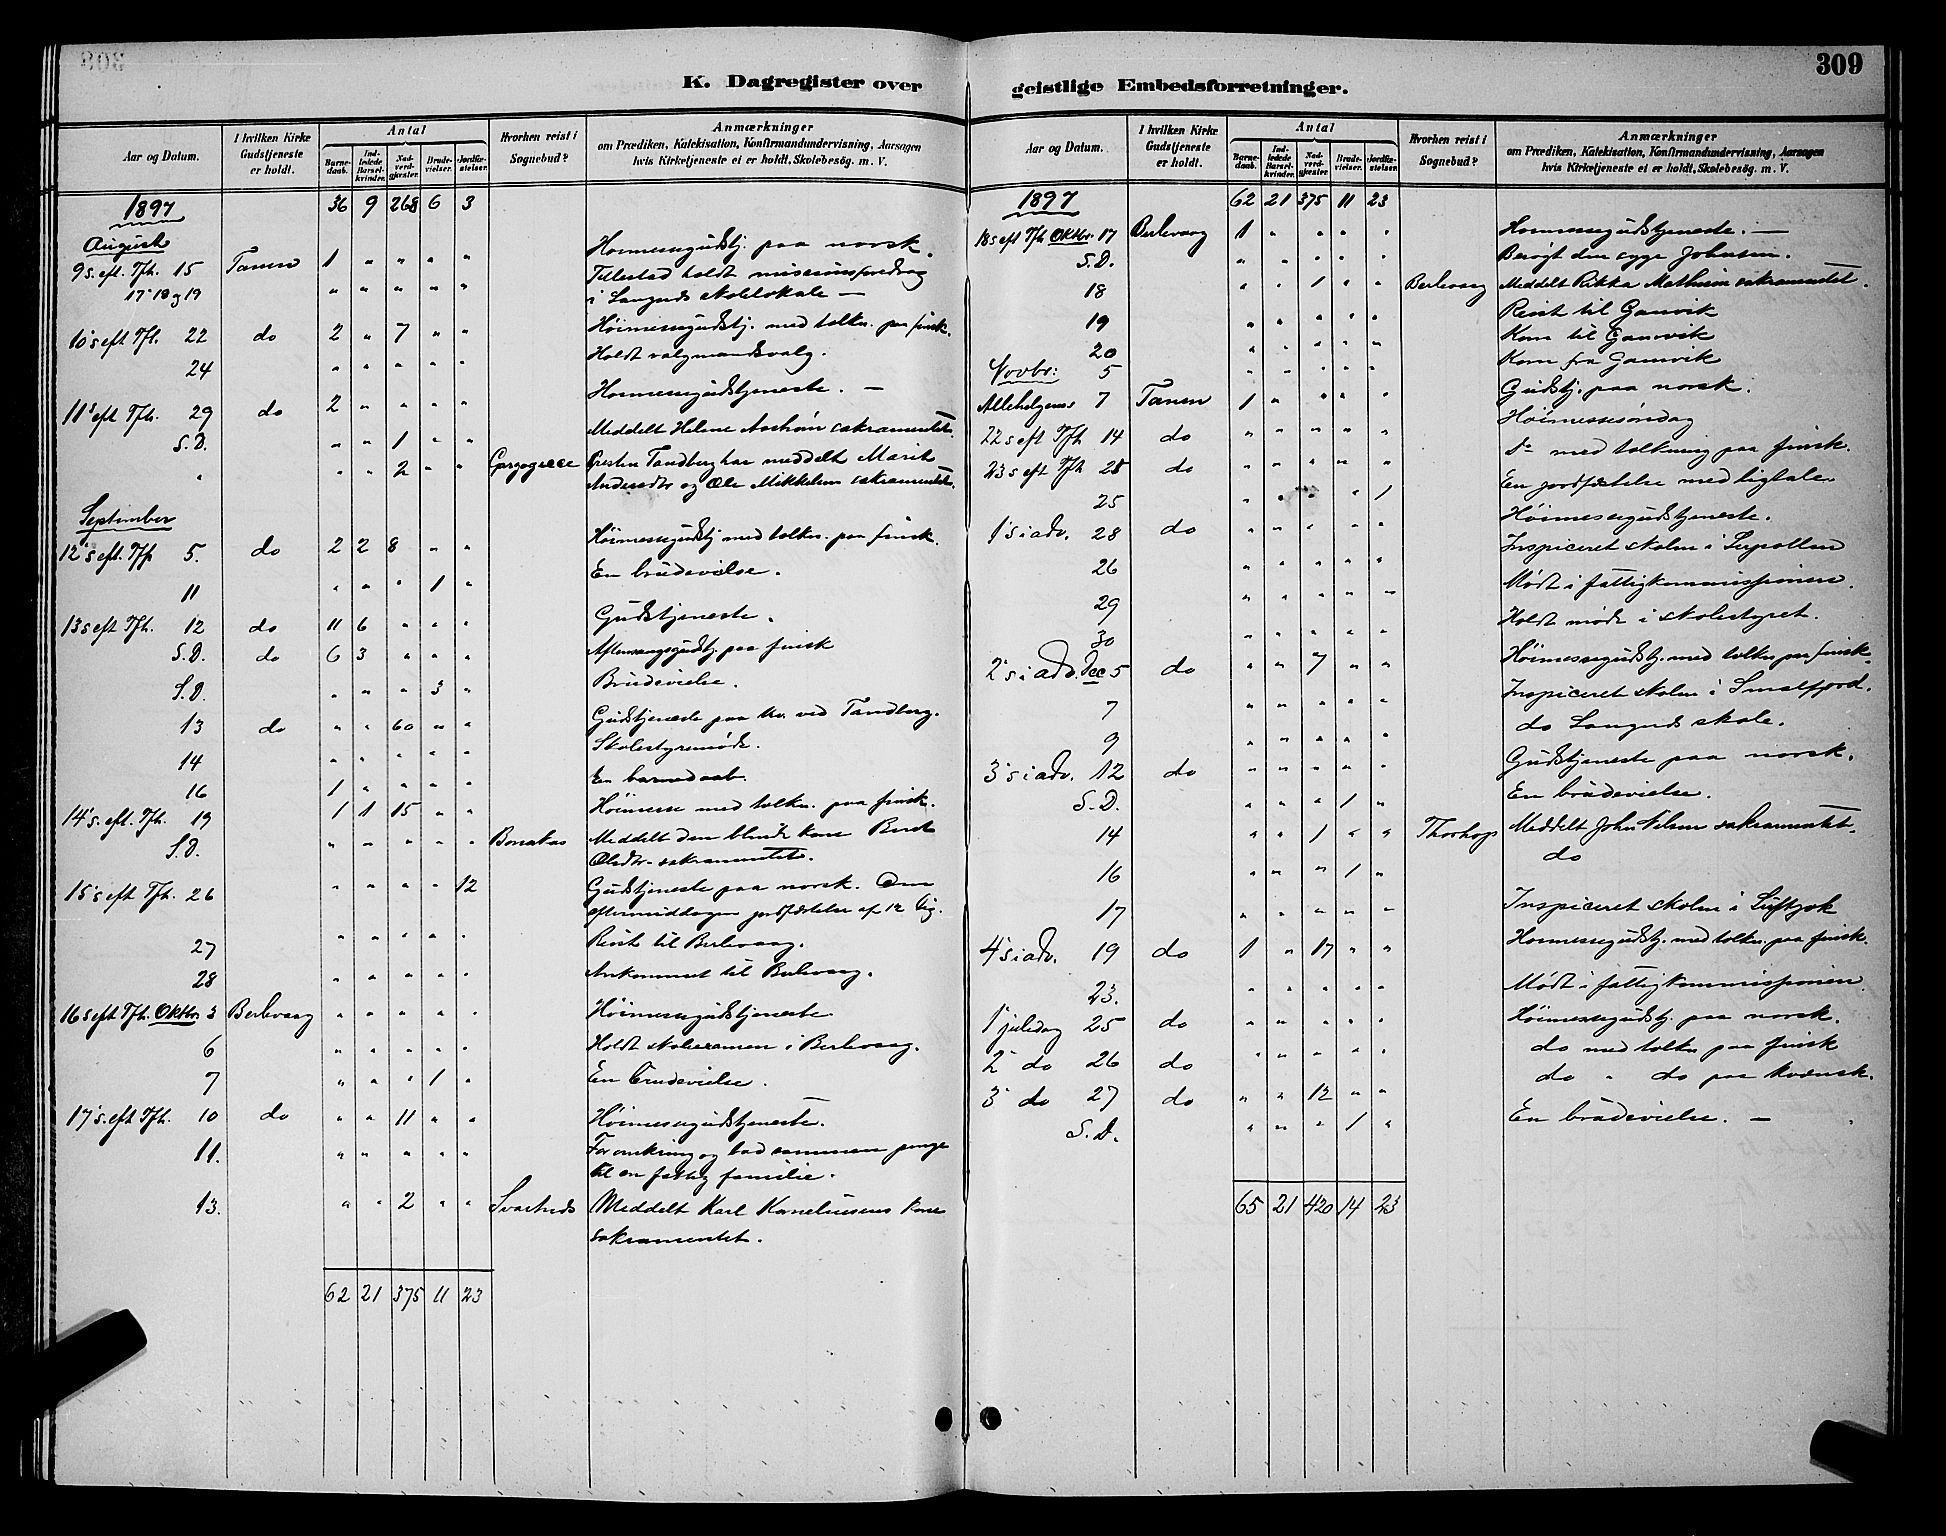 309
K. Dagregister over
Aar og Datum.
I hvilken Kirke Gudstjeneste er holdt.
Antal
Barne-daab.
Ind-ledede Barsel-kvinder.
Nad-verd-gjester.
Brude-vielser.
Jordfæ-stelser.
Hvorhen reist i Sognebud?
Anmærkninger
om Prædiken, Katekisation, Konfirmandundervisning, Aarsagen
hvis Kirketjeneste ei er holdt, Skolebesøg. m. V.
1897 36 9 268 6 3
August
9 s. eft. Tfh. 15 Tanen 1 " " " " Høimessegudstj. paa norsk.
17 18 og 19 " " " " " Tillestad holdt missionsforedrag
i Langnes skolelokale —
10 s eft Tfh. 22 do 2 " 7 " " Høimessegudstj. med tolkn. paa finsk.
24 " " " " " Holdt valgmandsvalg.
11 s eft Tfh. 29 do 2 " " " " Høimessegudstjeneste. —
S.D. " " 1 " " Meddelt Helene sakramentet.
" " " 2 " " Presten Tandberg har meddelt Marit
Andersdtr og Ole Mikkelsen sakramentet.
September
12 s eft. Tfh 5. do 2 2 8 " " Høimessegudstj med tolkn. paa finsk.
11 " " " 1 " En brudevielse.
13 s eft Tfh. 12 do 11 6 " " " Gudstjeneste.
S.D. do 6 3 " " " Aftensangsgudstj. paa finsk
S.D. " " " 3 " Brudevielse.
13 do " " 60 " " Gudstjeneste paa kv. ved Tandberg.
14 " " " " " Skolestyremøde.
16 1 " " " " En barnedaab.
14 s. eft. Tfh. 19 1 1 15 " " Høimesse med tolkn. paa finsk.
S.D. " " " " " Bonakas Meddelt den blinde kone Berit
Olsdtr. sakramentet.
15 s eft Tfh. 26 " " " " 12 Gudstjeneste paa norsk. Om
eftermiddagen jordfæstelse af 12 lig.
27 " " " " " Reist til Berlevaag.
28 " " " " " Ankommet til Berlevaag.
16 s eft Tfh. Oktbr 3 Berlevaag " " " " " Høimessegudstjeneste
6 " " " " " Holdt skoleexamen i Berlevaag.
7 " " " 1 " En brudevielse.
17 s. eft Tfh. 10 do " " 11 " " Høimessegudstjeneste.
11. " " " " " For omkring og bad sammen penge
til en fattig familie.
13. " " 2 " " Svartnes Meddelt Karl Korneliusens kone
sakramentet.
62 21 375 11 23
geistlige Embedsforretninger.
309
Aar og Datum.
I hvilken Kirke Gudstjeneste er holdt.
Antal
Barne-daab.
Ind-ledede Barsel-kvinder.
Nad-verd-gjester.
Brude-vielser.
Jordfæ-stelser.
Hvorhen reist i Sognebud?
Anmærkninger
om Prædiken, Katekisation, Konfirmandundervisning, Aarsagen
hvis Kirketjeneste ei er holdt, Skolebesøg. m. V.
1897 62 21 375 11 23
18 s eft Tfh Oktbr. 17 Berlevaag 1 " " " " Høimessegudstjeneste. —
S.D. " " " " " Besøgt den syge Johnsen.
18 " " 1 " " Berlevaag Meddelt Rikka Mathisen sakramentet.
19 " " " " " Reist til Gamvik
20 " " " " " Kom til Gamvik
Novbr: 5 " " " " " Kom fra Gamvik
Allehelgens 7 Tanen 1 " " " " Gudstj. paa norsk.
22 s eft Tfh 14 do " " " " " Høimessesøndag
23 s eft Tfh 28 do " " " " " do med tolkning paa finsk.
25 " " " " 1 En jordfæstelse med ligtale.
1 s i adv. 28 do " " " " " Høimessegudstjeneste.
26 " " " " " Inspiceret skolen i
29 " " " " " Mødt i fattigkommissionen.
30 " " " " " Holdt møde i skolestyret.
2 s i adv. Dec 5 do " " 7 " " Høimessegudstj. med tolkn paa finsk.
7 " " " " " Inspiceret skolen i Smalfjord.
9 " " " " " do Langnes skole.
3 s i adv. 12 do " " " " " Gudstjeneste paa norsk.
S.D. " " " 1 " En brudevielse.
14 " " 1 " " Thorhop Meddelt John Nilsen sakramentet.
16 " " " 1 " do
17 " " " " " Inspiceret skolen i Luftjok
4 s i adv. 19 do 1 " 17 " " Høimessegudstj. med tolkn. paa finsk.
23. " " " " " Mødt i fattigkommissionen.
1 juledag 25 do " " " " " Høimessegudstj. paa norsk.
2 do 26 do " " " " " do med tolkn paa finsk
3 do 27 do " " 12 " " do " do paa kvænsk.
S.D. " " " 1 " En brudevielse. —
65 21 420 14 23